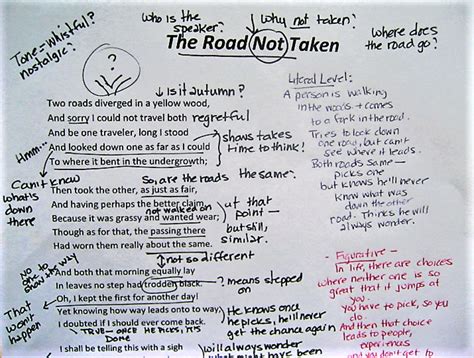 who is the speaker?
why not taken?
where does the road go?
Tone – whistful?
nostalgic?
The Road Not Taken
?
Is it autumn?
Two roads diverged in a yellow wood,
And sorry I could not travel both
regretful
And be one traveler, long I stood
And looked down one as far as I could
To where it bent in the undergrowth;
shows takes
time to think!
Hmm...
Literal Level:
A person is walking
in the woods + comes
to a fork in the road.
Tries to look down
one road, but can't
see where it leads.
Both roads same –
picks one
but knows he'll never
know what was
down the other
road. Thinks he will
always wonder.
Can't know
what's
down
there
So, are the roads the same?
Then took the other, as just as fair,
And having perhaps the better claim,
not walked on
Because it was grassy and wanted wear;
Though as for that, the passing there
Had worn them really about the same.
at that
point –
but still,
similar.
not so different
No one to
show the way
And both that morning equally lay
In leaves no step had trodden black.
means stepped on
Oh, I kept the first for another day!
Yet knowing how way leads onto way
I doubted if I should ever come back.
That
won't
happen
He knows once
he picks, he'll never
get the chance again
TRUE – ONCE HE PICKS, IT'S DONE
I shall be telling this with a sigh
Will always wonder
what might have been
- Figurative -
In life, there are choices
where neither one is so
great that it jumps at
you.
you have to pick, so you
do.
And then that choice
leads to people,
experiences